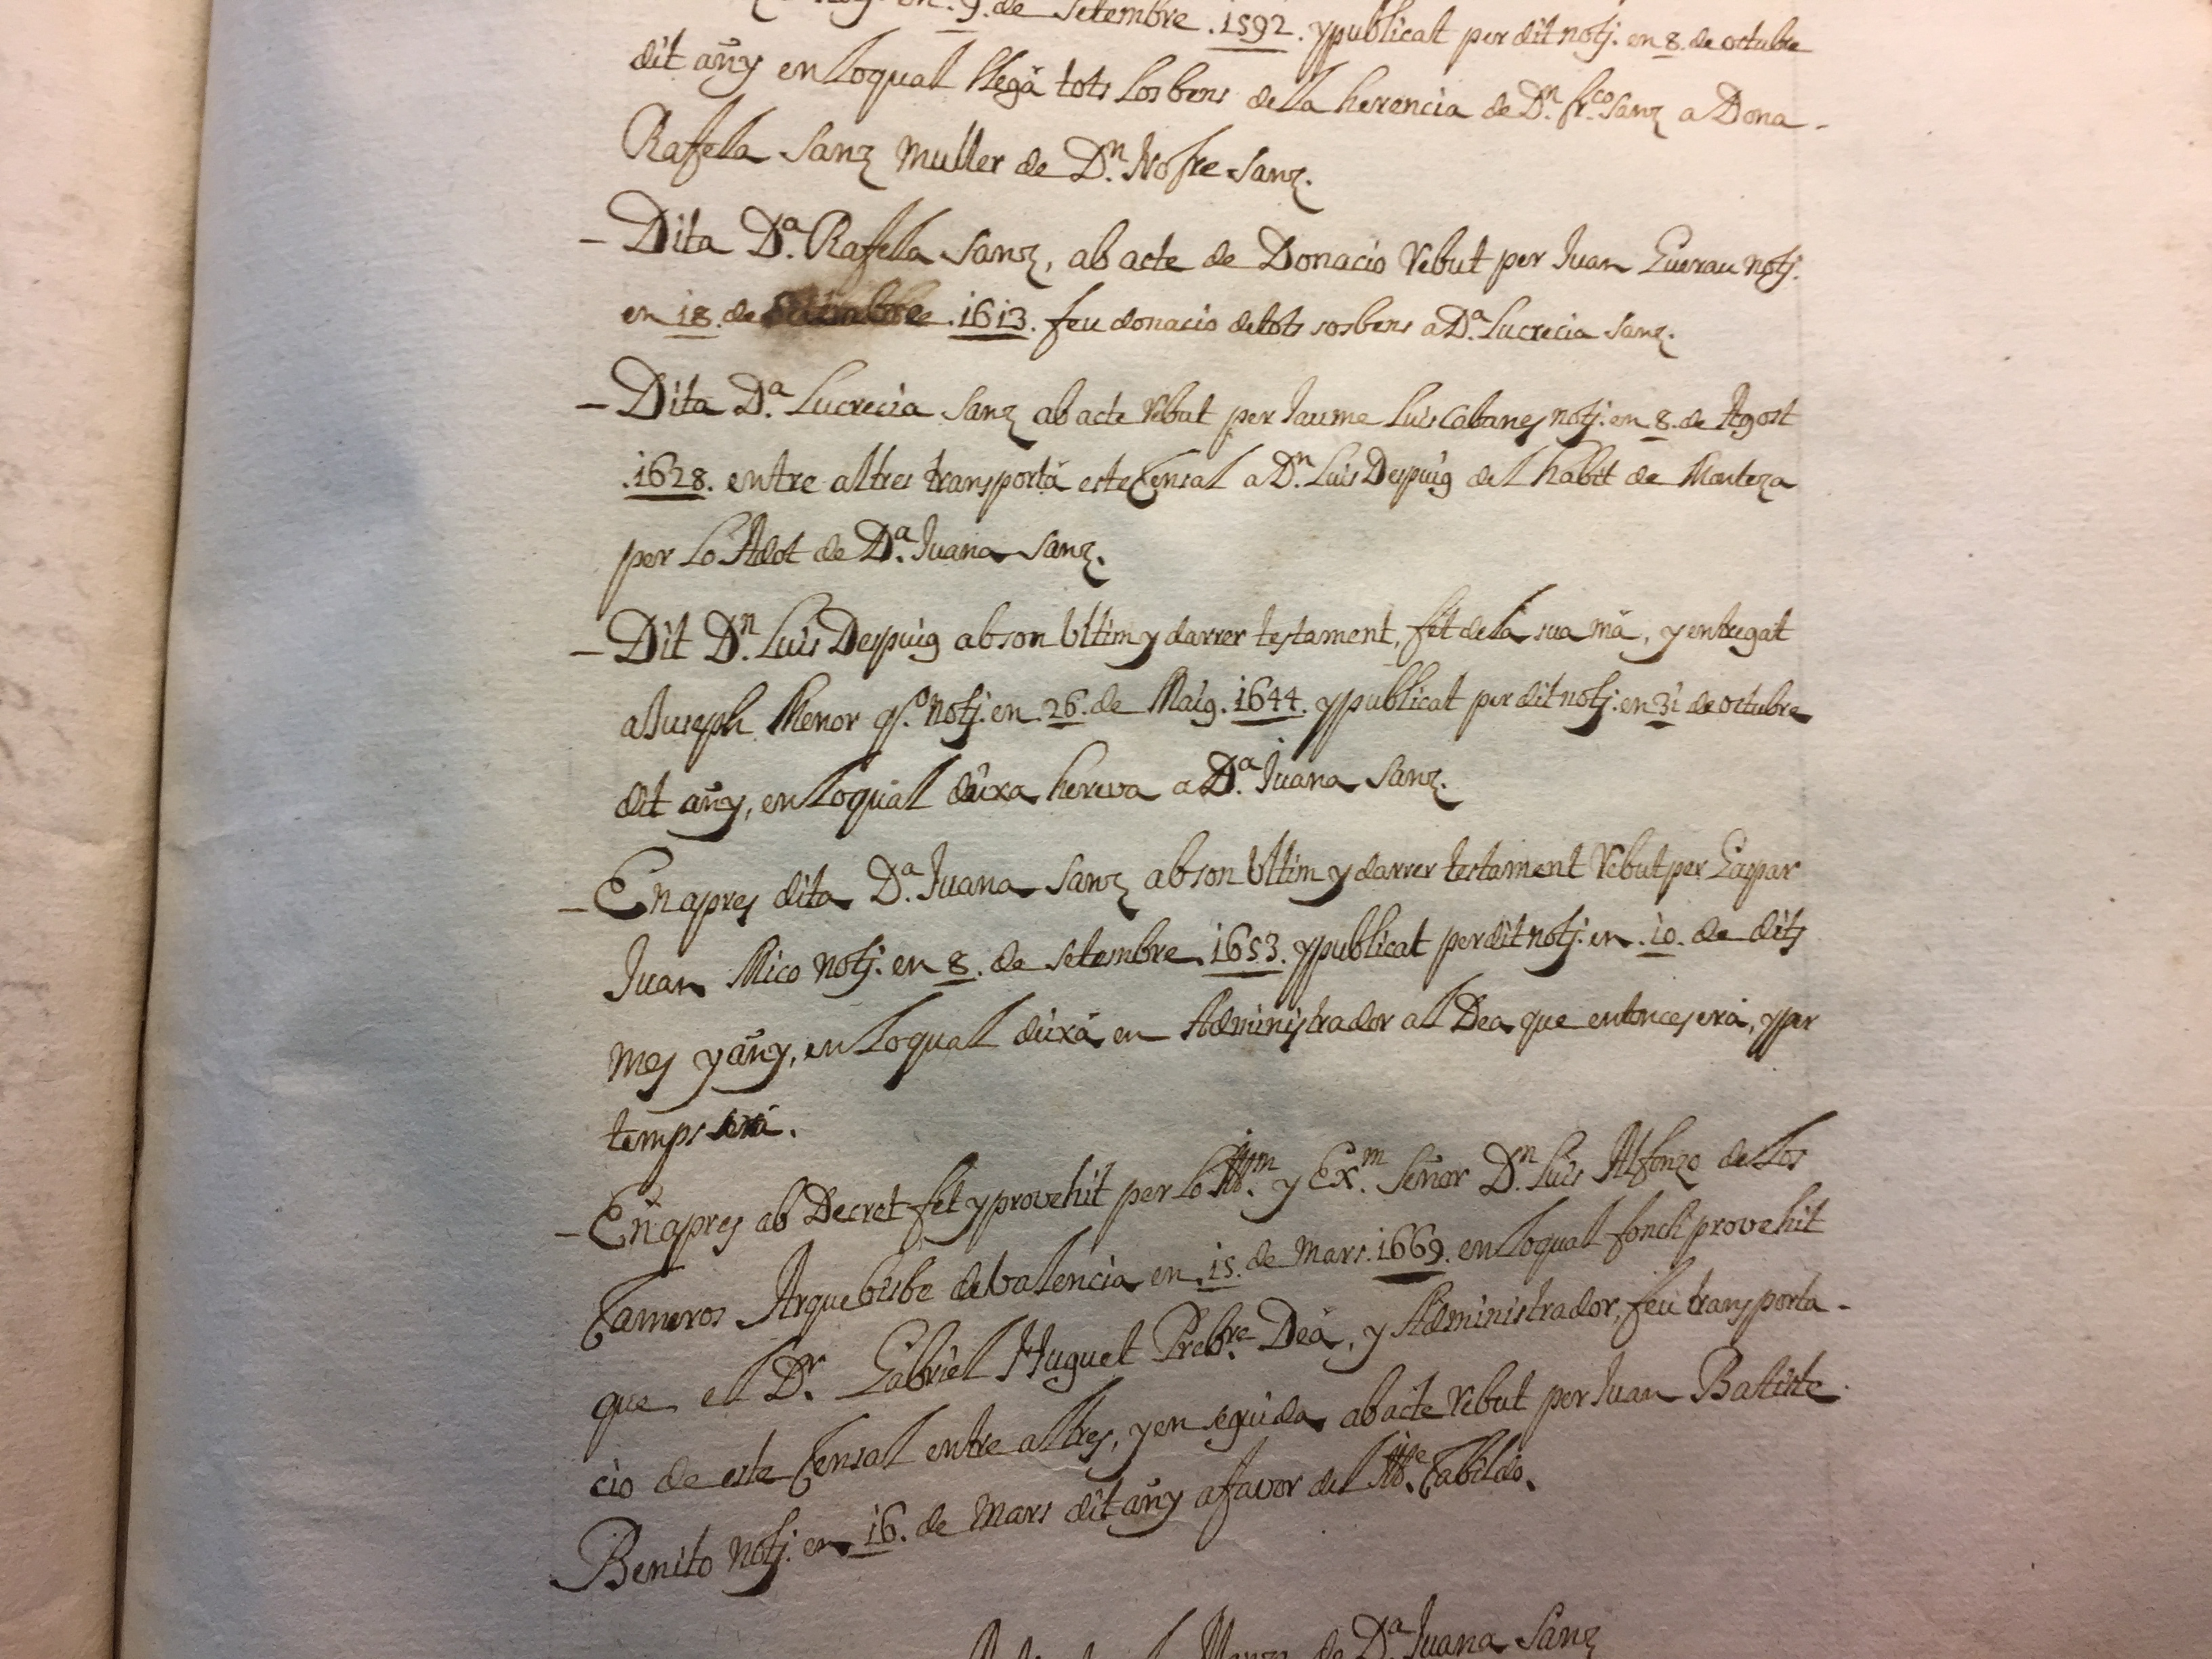 en 9. de Setembre .1592. y publicat per dit notj. en 8. de octubre
dit añy en lo qual llegà tots los bens de la herencia de Dn. fr.co Sanz a Dona
Rafela Sanz muller de Dn. Nofre Sanz.
– Dita Da. Rafela Sanz, ab acte de Donacio Rebut per Juan Guerau notj.
en 18. de .1613. feu donacio de tots sos bens a Da. Lucrecia Sanz.
– Dita Da. Lucrecia Sanz ab acte Rebut per Jaume Luis Cabanes notj. en 8. de Agost
.1628. entre altres transportà este Censal a Dn. Luis Despuig del habit de Monteza
per lo Adot de Da. Juana Sanz.
– Dit Dn. Luis Despuig ab son Ultim y darrer testament, fet de la sua mà, y entregat
a Juseph Menor qo. notj. en .26. de Maig .1644. y publicat per dit notj. en 31 de octubre
dit añy, en lo qual deixa hereva a Da. Juana Sanz.
– En apres dita Da. Juana Sanz ab son Ultim y darrer testament Rebut per Gaspar
Juan Mico notj. en 8. de Setembre .1653. y publicat per dit notj. en .10. de dits
mes y añy, en lo qual deixà en Administrador al Dea que entonces era, y per
temps serà.
– En apres ab Decret fet y provehit per lo Illm. y Exm. Señor Dn. Luis Alfonzo de los
Cameros Arquebisbe de Valencia en .15. de Mars .1669. en lo qual fonch provehit
que el Dr. Gabriel Huguet Prebre. Deà, y Administrador, feu transporta-
cio de este Censal entre altres, y en seguida ab acte Rebut per Juan Batiste
Benito notj. en 16. de Mars dit añy a favor del Ille. Cabildo.
de Da. Juana Sanz